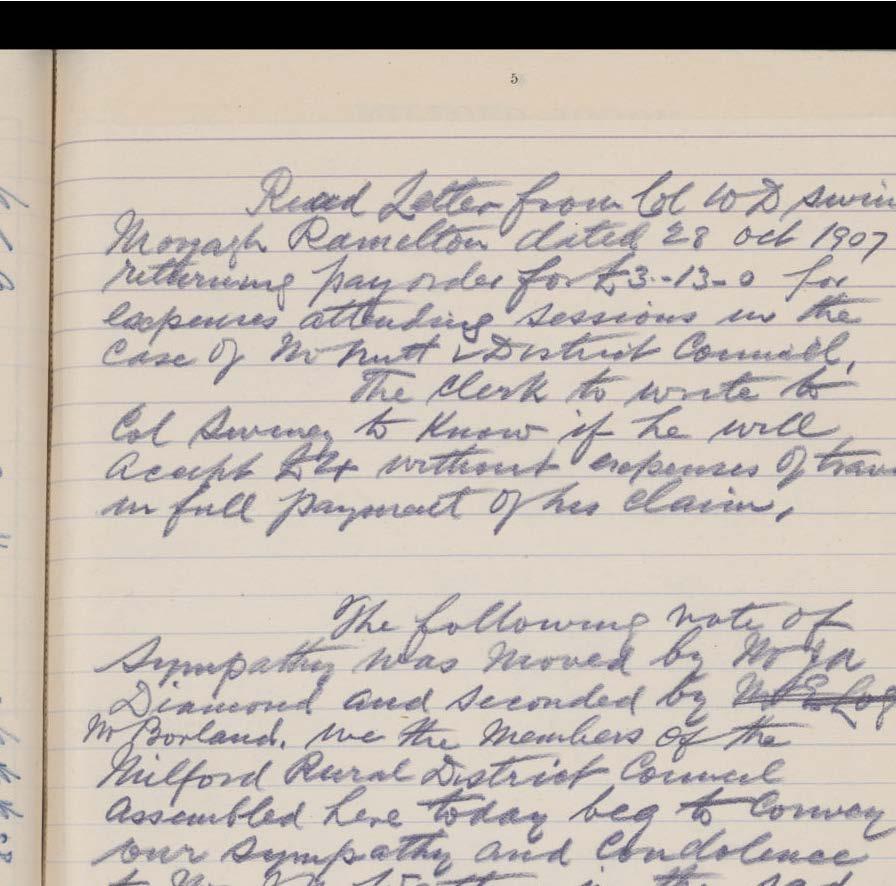 5
Read Letter from Col W D Swin
Moyagh Ramelton dated 28 oct 1907
returning pay order for £3-13-0 for
expenses attending sessions in the
case of McNutt v District Council,
The Clerk to write to
Col Swiney to Know if he will
accept £4 without expenses of trav
in full payment of his claim,
The following vote of
Sympathy was moved by Mr
Diamond and seconded by
Mr Borland. we the Members of the
Milford Rural District Council
assembled here today beg to Convey
our Sympathy and Condolence
to Mr in the sad